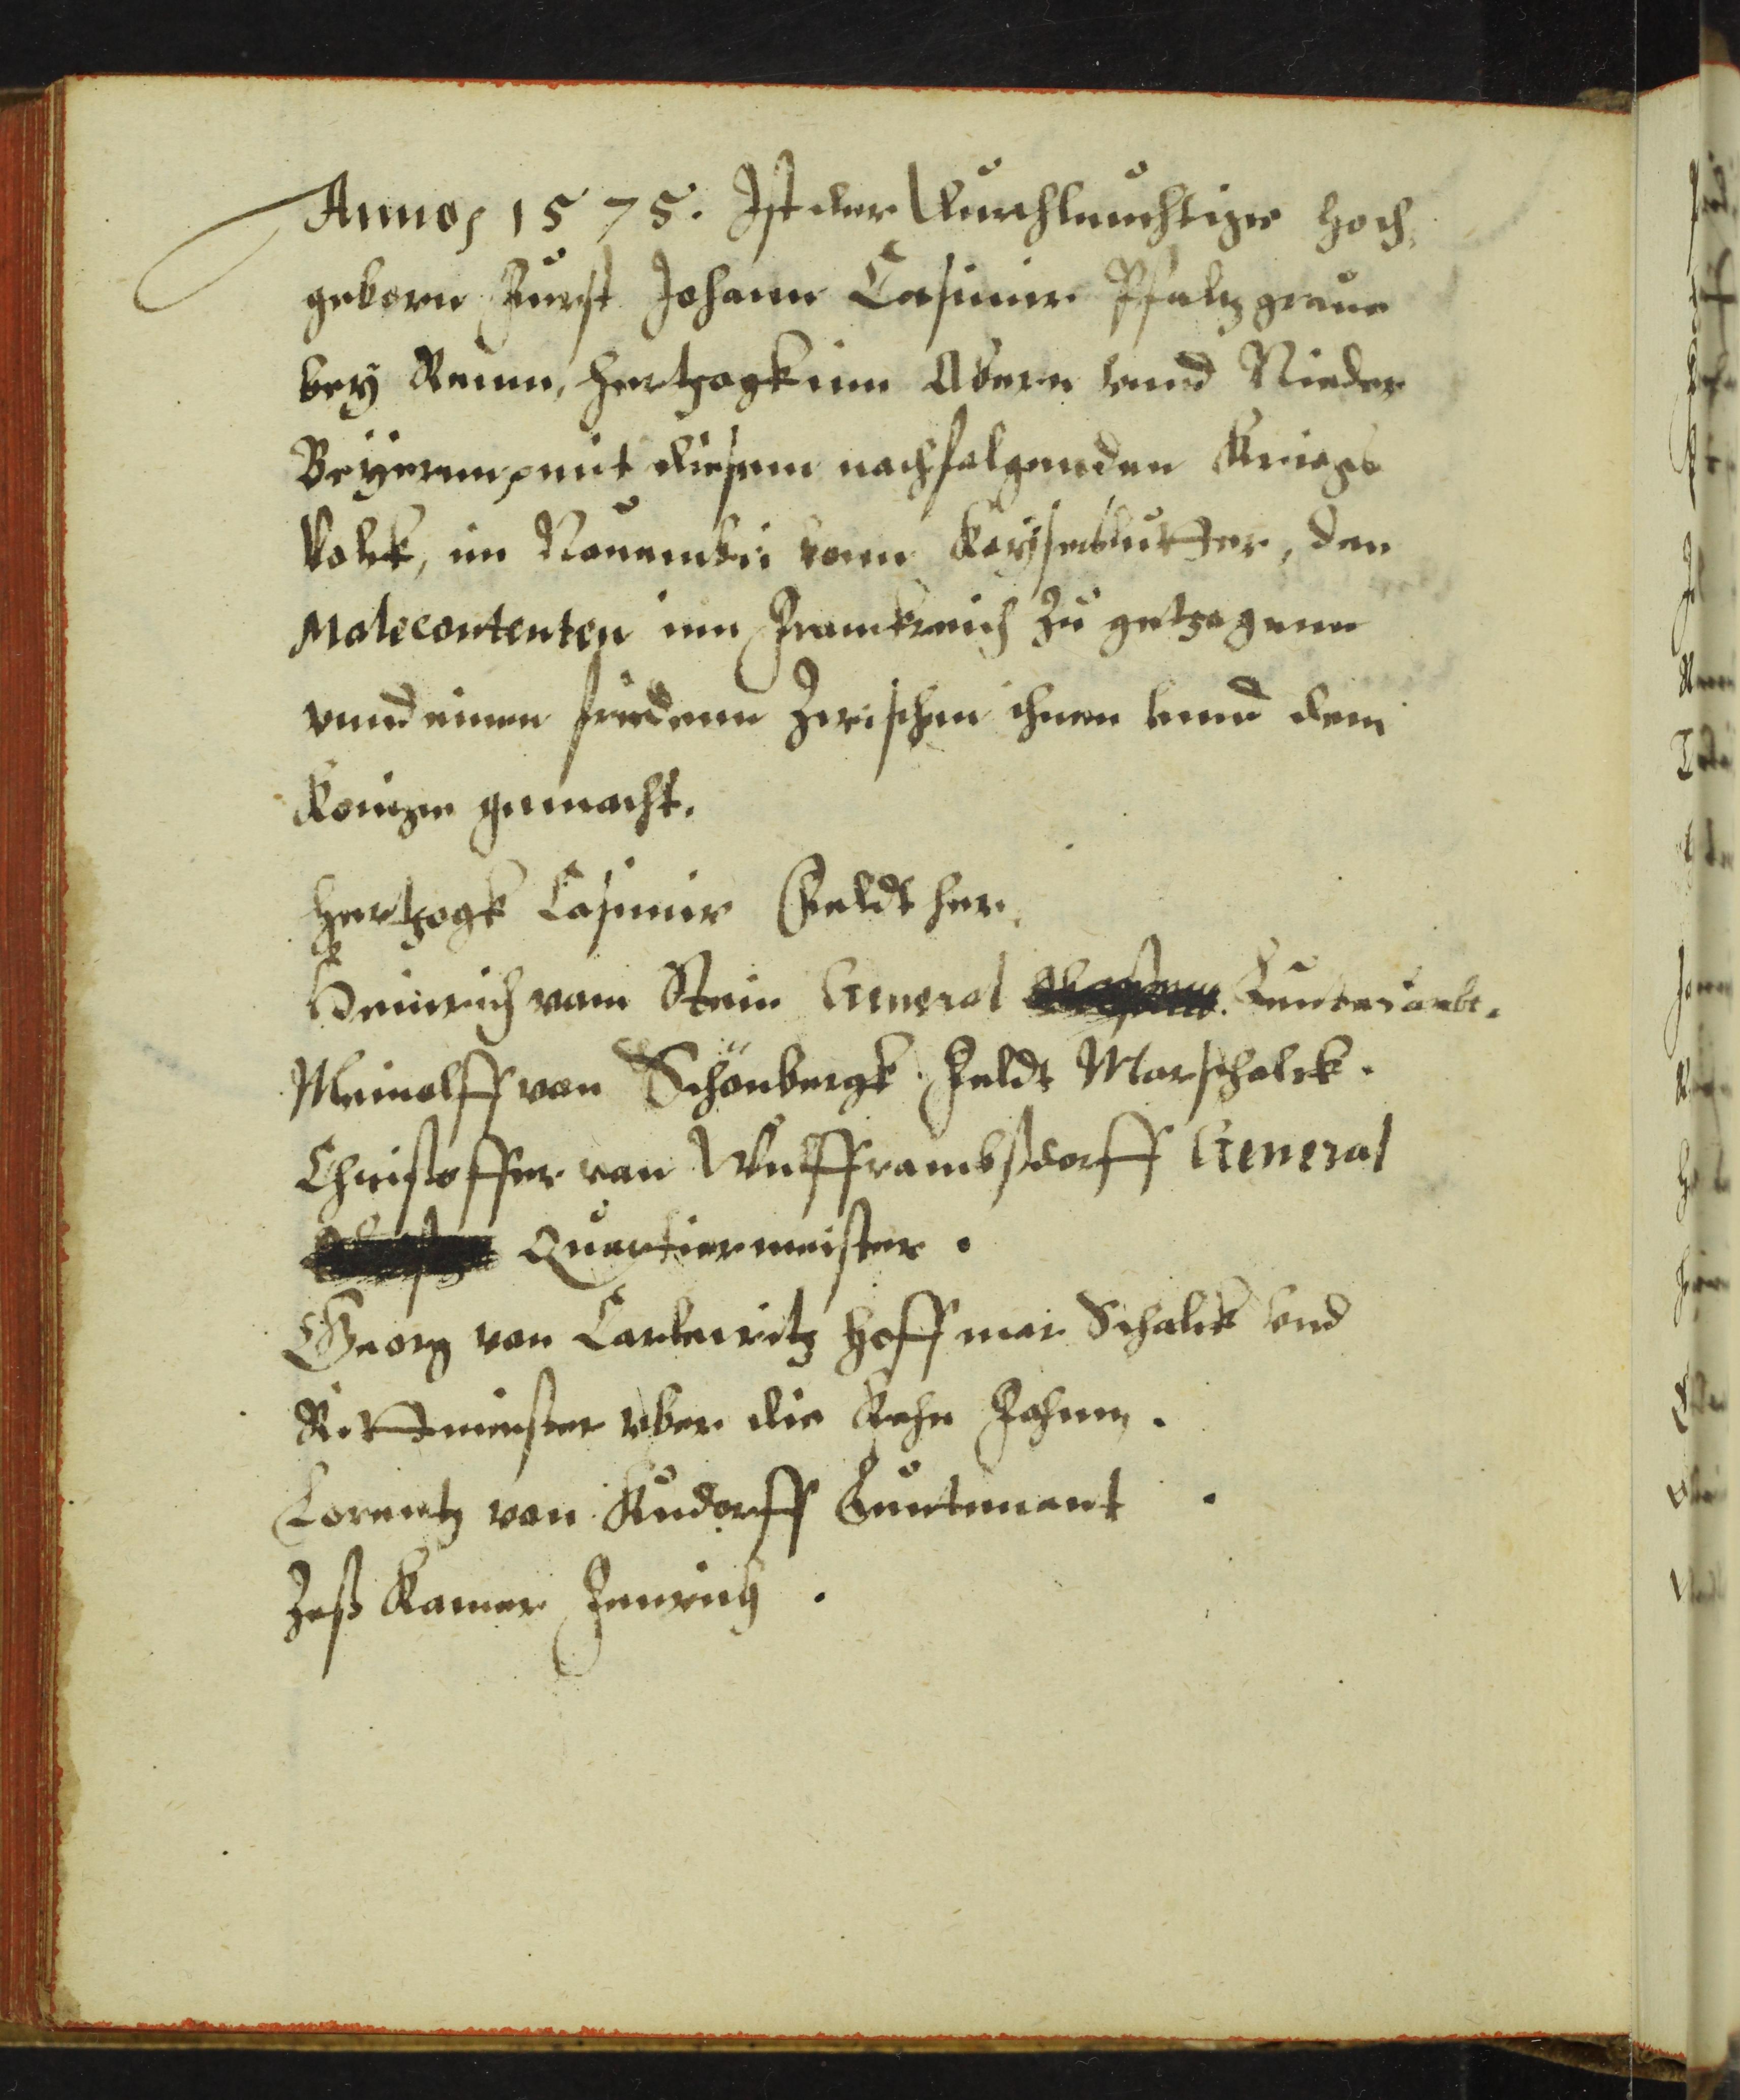 Anno 1575. Ist der Durchleuchtiger Hoch,
geborn Fürst Johann Casimir Pfaltzgraue
bey Reinn, Hertzogk inn Obern vnnd Nieder
Beyernn, mit diesem nachfolgenden Kriegs
Volck, im Nouembri vonn Keyserslutter, den
Malecontenten inn Franckreich zu getzogenn
vnnd einen friedenn zwischen ihnen vnnd dem
Konige gemacht.
Hertzogk Casimir Feldt her.
Heinrich vom Stein General Leutenambt.
Meinolff von Schönbergk Feldt Marschalck.
Christoffer von Wulfframbsdorff General
Quartiermeister.
Georg von Carlewitz Hoff mar Schalck vnd
Rittmeister vber die Rehn Fahnn.
Lorentz von Rudorff Leutenant.
Fenrich.